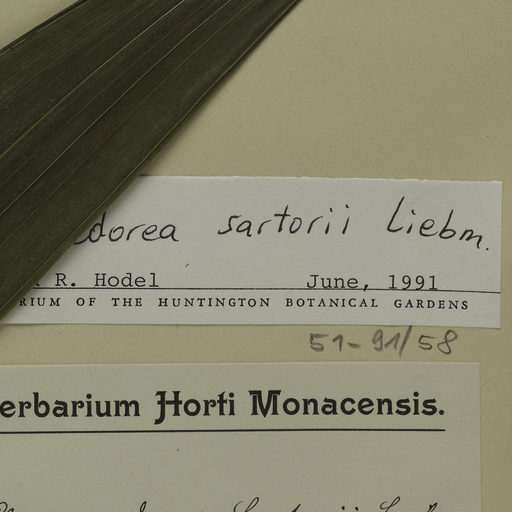 dorea sartorii Liebm.
R. Hodel June, 1991
RIUM OF THE HUNTINGTON BOTANICAL GARDENS
51-91/58
erbarium Horti Monacensis.